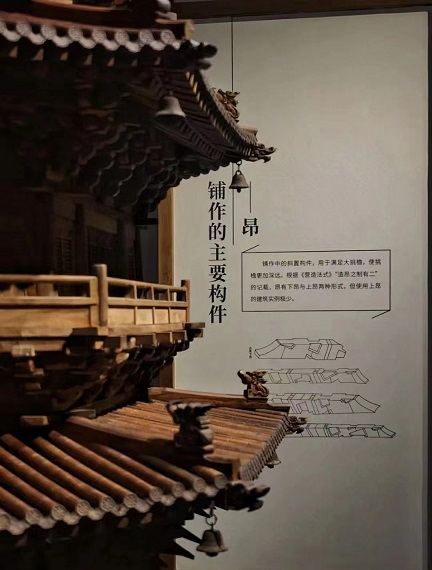 铺作的主要构件
昂
铺作中的斜置构件，用于满足大挑檐，使挑
檐更加深远。根据《营造法式》“造昂之制有二”
的记载，昂有下昂与上昂两种形式，但使用上昂
的建筑实例极少。